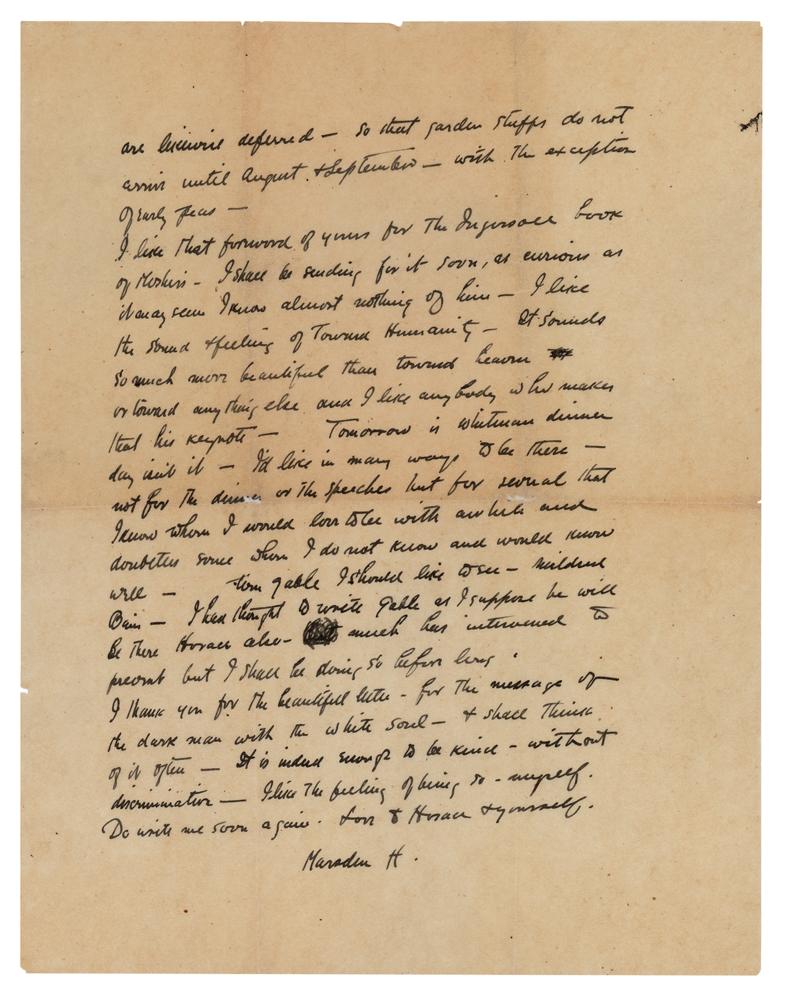 are likewise deferred — so that garden stuffs do not
arrive until August & September — with the exception
of early peas —
I like that foreword of yours for the Ingersoll book
of Moshers - I shall be sending for it soon, as curious as
it may seem I know almost nothing of him — I like
the sound & feeling of Toward Humanity — It sounds
so much more beautiful than toward heaven
or toward anything else and I like anybody who makes
that his keynote — Tomorrow is Whitman dinner
day isn't it — I'd like in many ways to be there —
not for the dinner or the speeches but for several that
I know whom I would love to be with awhile and
doubtless some whom I do not know and would know
well — Gable I should like to see — Mildred
Bain — I had thought to write Gable as I suppose he will
be there Horace also - much has intervened to
prevent but I shall be doing so before long .
I thank you for the beautiful letter - for the message of
the dark man with the white soul — & shall think
of it often — It is indeed enough to be kind - without
discrimination — I like the feeling of being so - myself.
Do write me soon again. Love to Horace & yourself.
Marsden H.